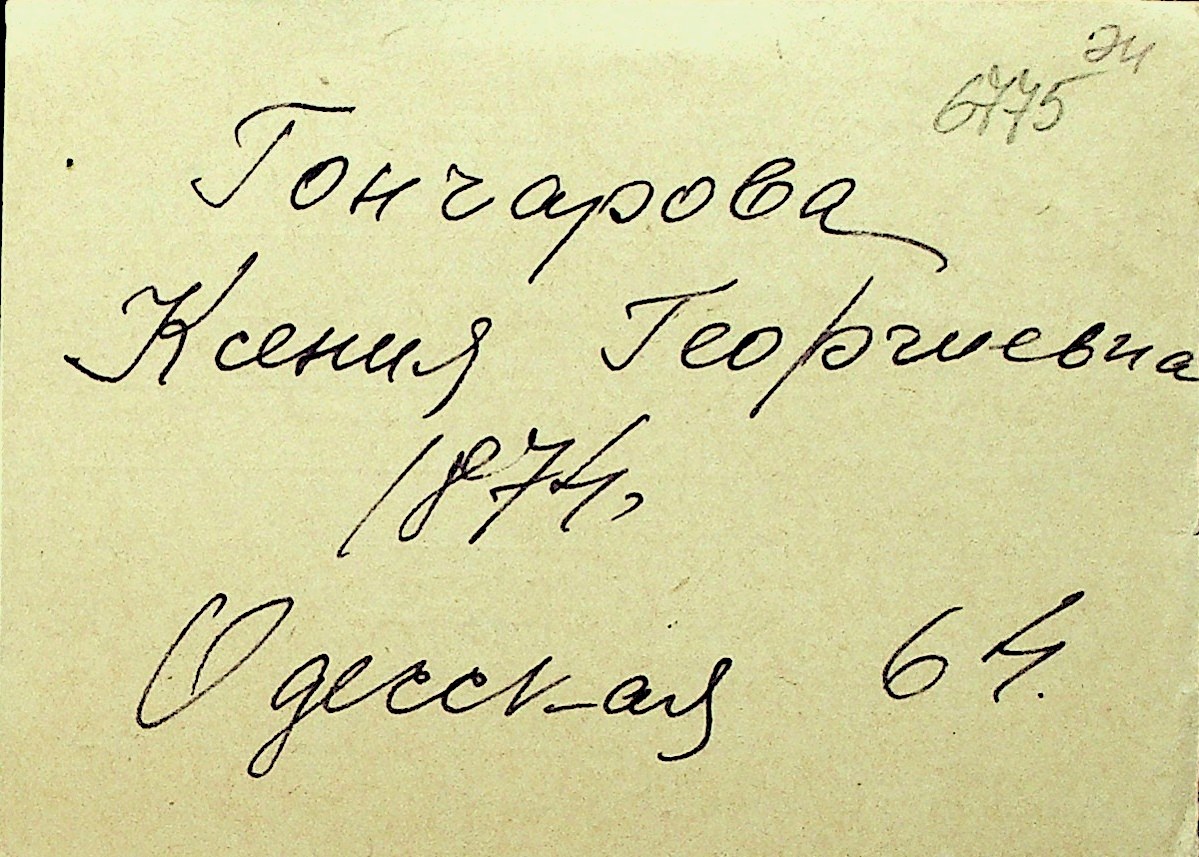 6775
Гончарова
Ксения Георгиевна
1874,
Одесская 64.